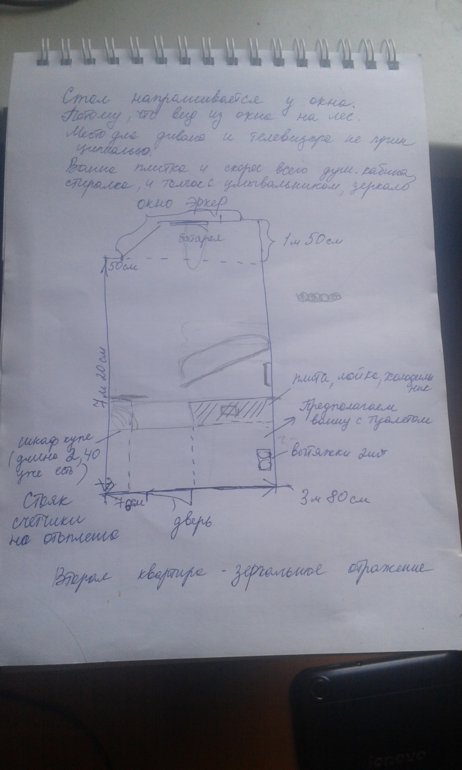 Стол напрашивается у окна.
Потому, что вид из окна на лес.
Место для дивана и телевизора не прин
ципиально.
Ванна плитка и скорее всего душ. кабина,
стиралка, и толос с умывальником, зеркало
окно эркер
батарея
1 м 50 см
50 см
7 м 20 см
плита, мойка, холодиль
ник
Предполагаем
ванну с туалетом
шкаф купе
(длина 2,40
уже есть)
вытяжки 2шт
Стояк
счетчики
на отопление
70см
дверь
3 м 80 см
Вторая квартира - зеркальное отражение
lenovo